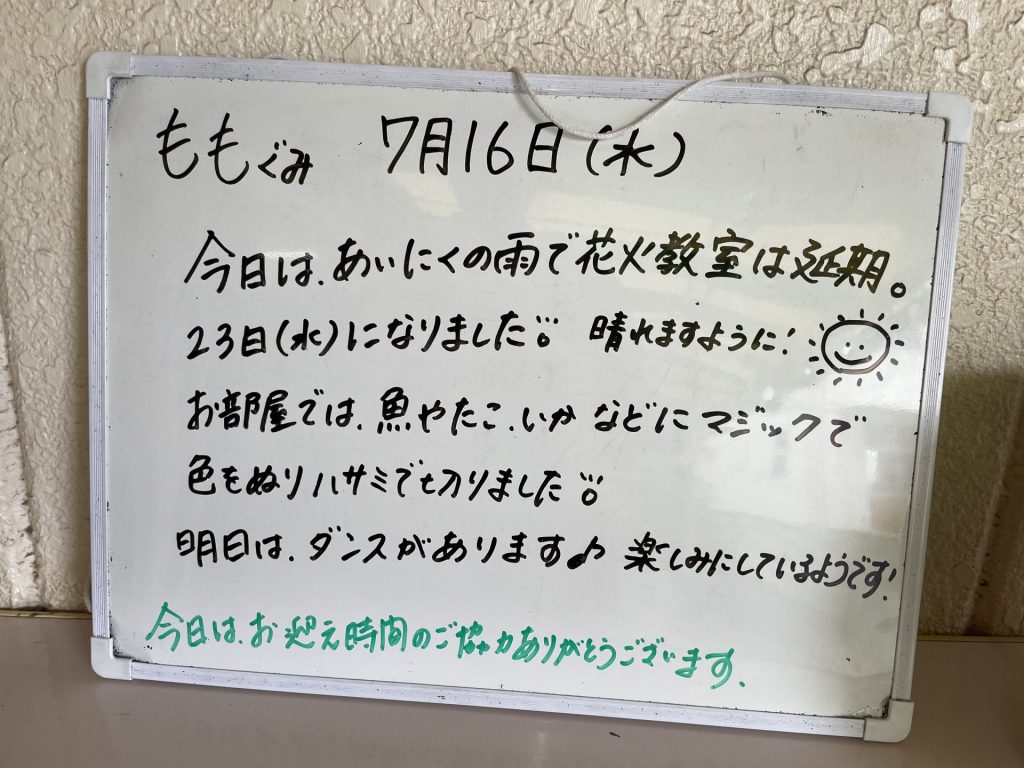 ももぐみ 7月16日(水)
今日は、あいにくの雨で花火教室は延期。
23日(水)になりました 晴れますように!
お部屋では、魚やたこ、いかなどにマジックで
色をぬりハサミで切りました
明日は、ダンスがあります♪ 楽しみにしているようです!
今日は、お迎え時間のご協力ありがとうございます。